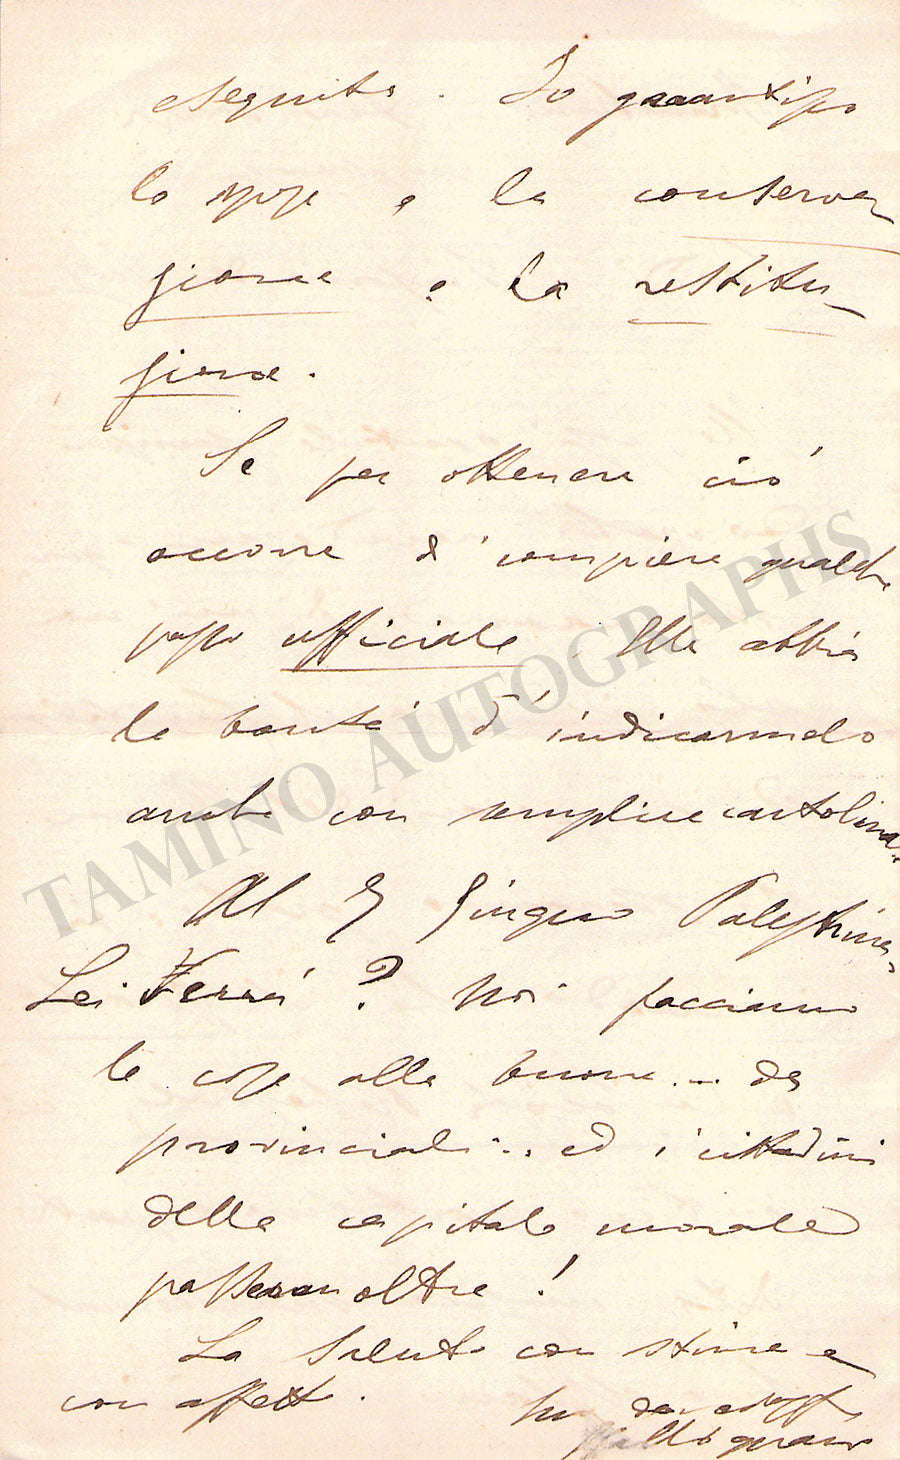 eseguito. Io garantisco
le spese e la conserva-
zione e la restitu-
zione.
Se per ottenere ciò
occorre di compiere qualche
passo ufficiale Ella abbia
la bontà d'indicarmelo
anche con semplice cartolina.
Al 9 Giugno Palestrina.
Lei Verrà? Noi facciamo
le cose alla buona... da
provinciali... ed i cittadini
della capitale morale
passeran oltre!
La saluto con stima e
con affetto.
TAMINO AUTOGRAPHS